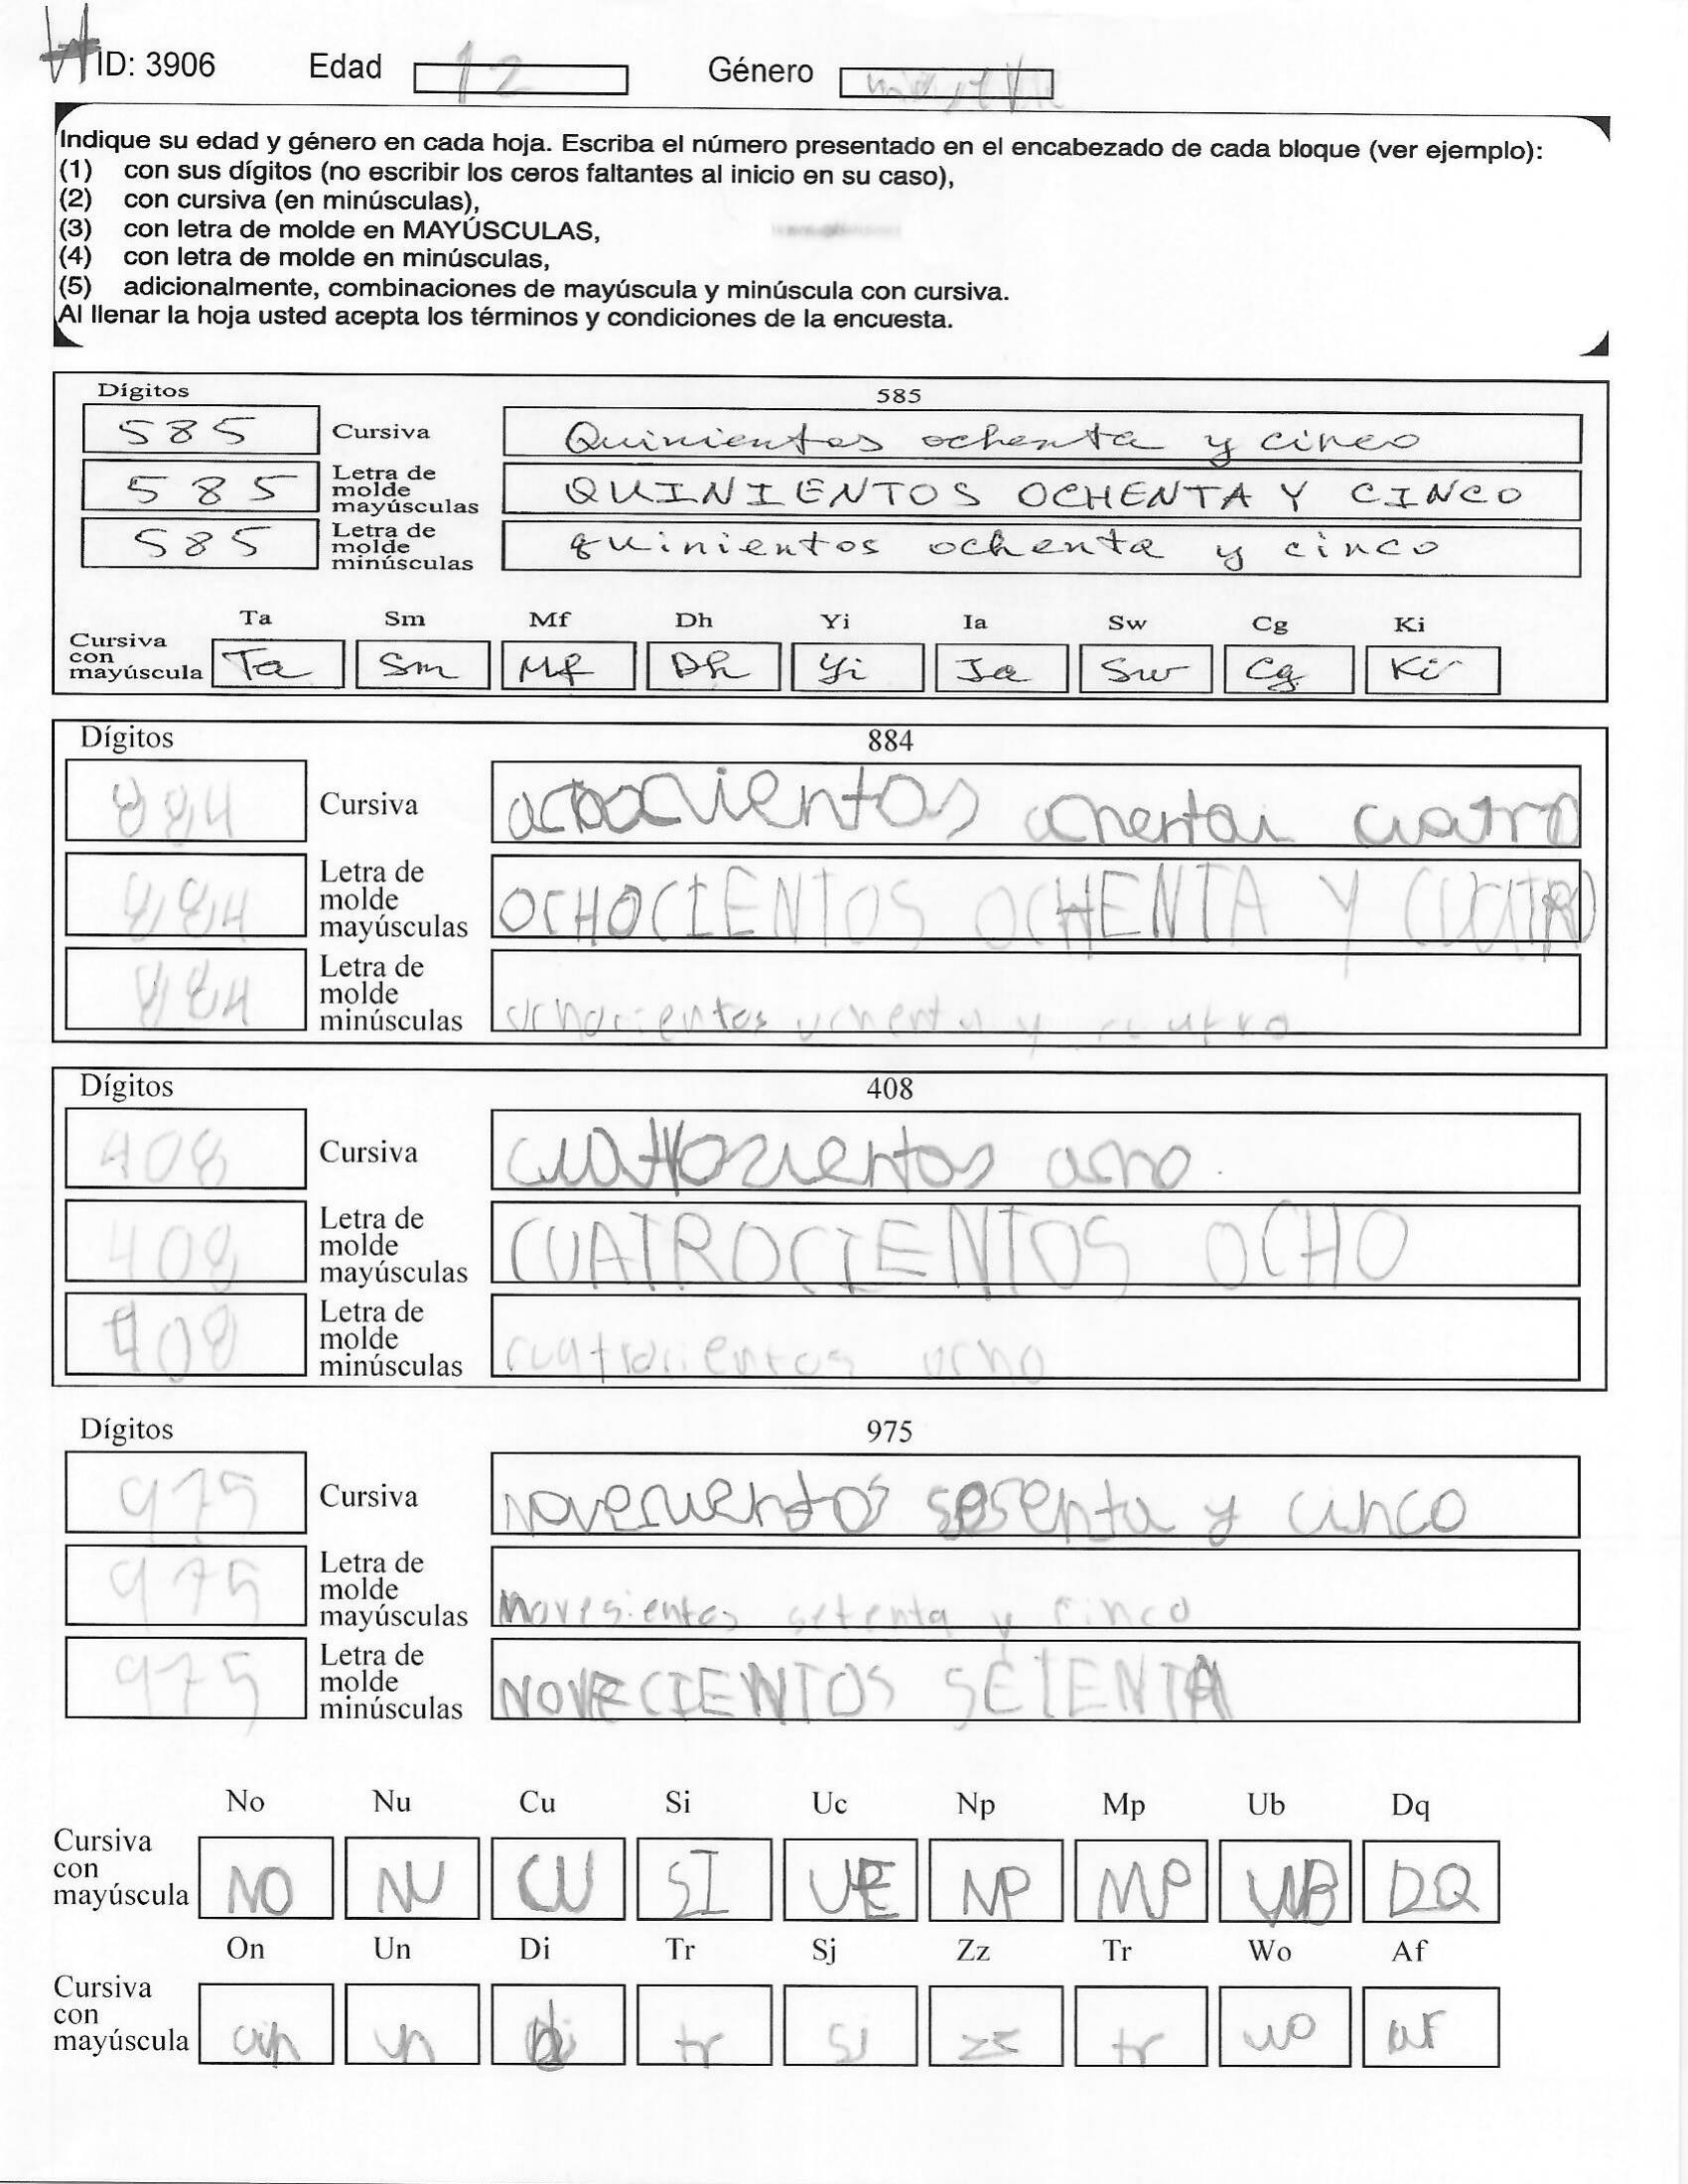 ID: 3906 Edad 12 Género
Indique su edad y género en cada hoja. Escriba el número presentado en el encabezado de cada bloque (ver ejemplo):
(1) con sus dígitos (no escribir los ceros faltantes al inicio en su caso),
(2) con cursiva (en minúsculas),
(3) con letra de molde en MAYÚSCULAS,
(4) con letra de molde en minúsculas,
(5) adicionalmente, combinaciones de mayúscula y minúscula con cursiva.
Al llenar la hoja usted acepta los términos y condiciones de la encuesta.
Dígitos 585
585 Cursiva Quinientos ochenta y cinco
585 Letra de molde mayúsculas QUINIENTOS OCHENTA Y CINCO
585 Letra de molde minúsculas quinientos ochenta y cinco
Ta Sm Mf Dh Yi Ia Sw Cg Ki
Cursiva con mayúscula Ta Sm Mf Dh Yi Ia Sw Cg Ki
Dígitos 884
884 Cursiva cuatro
884 Letra de molde mayúsculas OCHOCIENTOS OCHENTA Y CUATRO
884 Letra de molde minúsculas ochocientos ochenta y cuatro
Dígitos 408
408 Cursiva cuatrocientos
408 Letra de molde mayúsculas CUATROCIENTOS OCHO
408 Letra de molde minúsculas cuatrocientos ocho
Dígitos 975
975 Cursiva novecientos sesenta y cinco
975 Letra de molde mayúsculas novesientos setenta y cinco
975 Letra de molde minúsculas NOVECIENTOS SETENTA
No Nu Cu Si Uc Np Mp Ub Dq
Cursiva con mayúscula NO NU CU SI UE NP MP UB DQ
On Un Di Tr Sj Zz Tr Wo Af
Cursiva con mayúscula on un di tr sj zz tr wo af